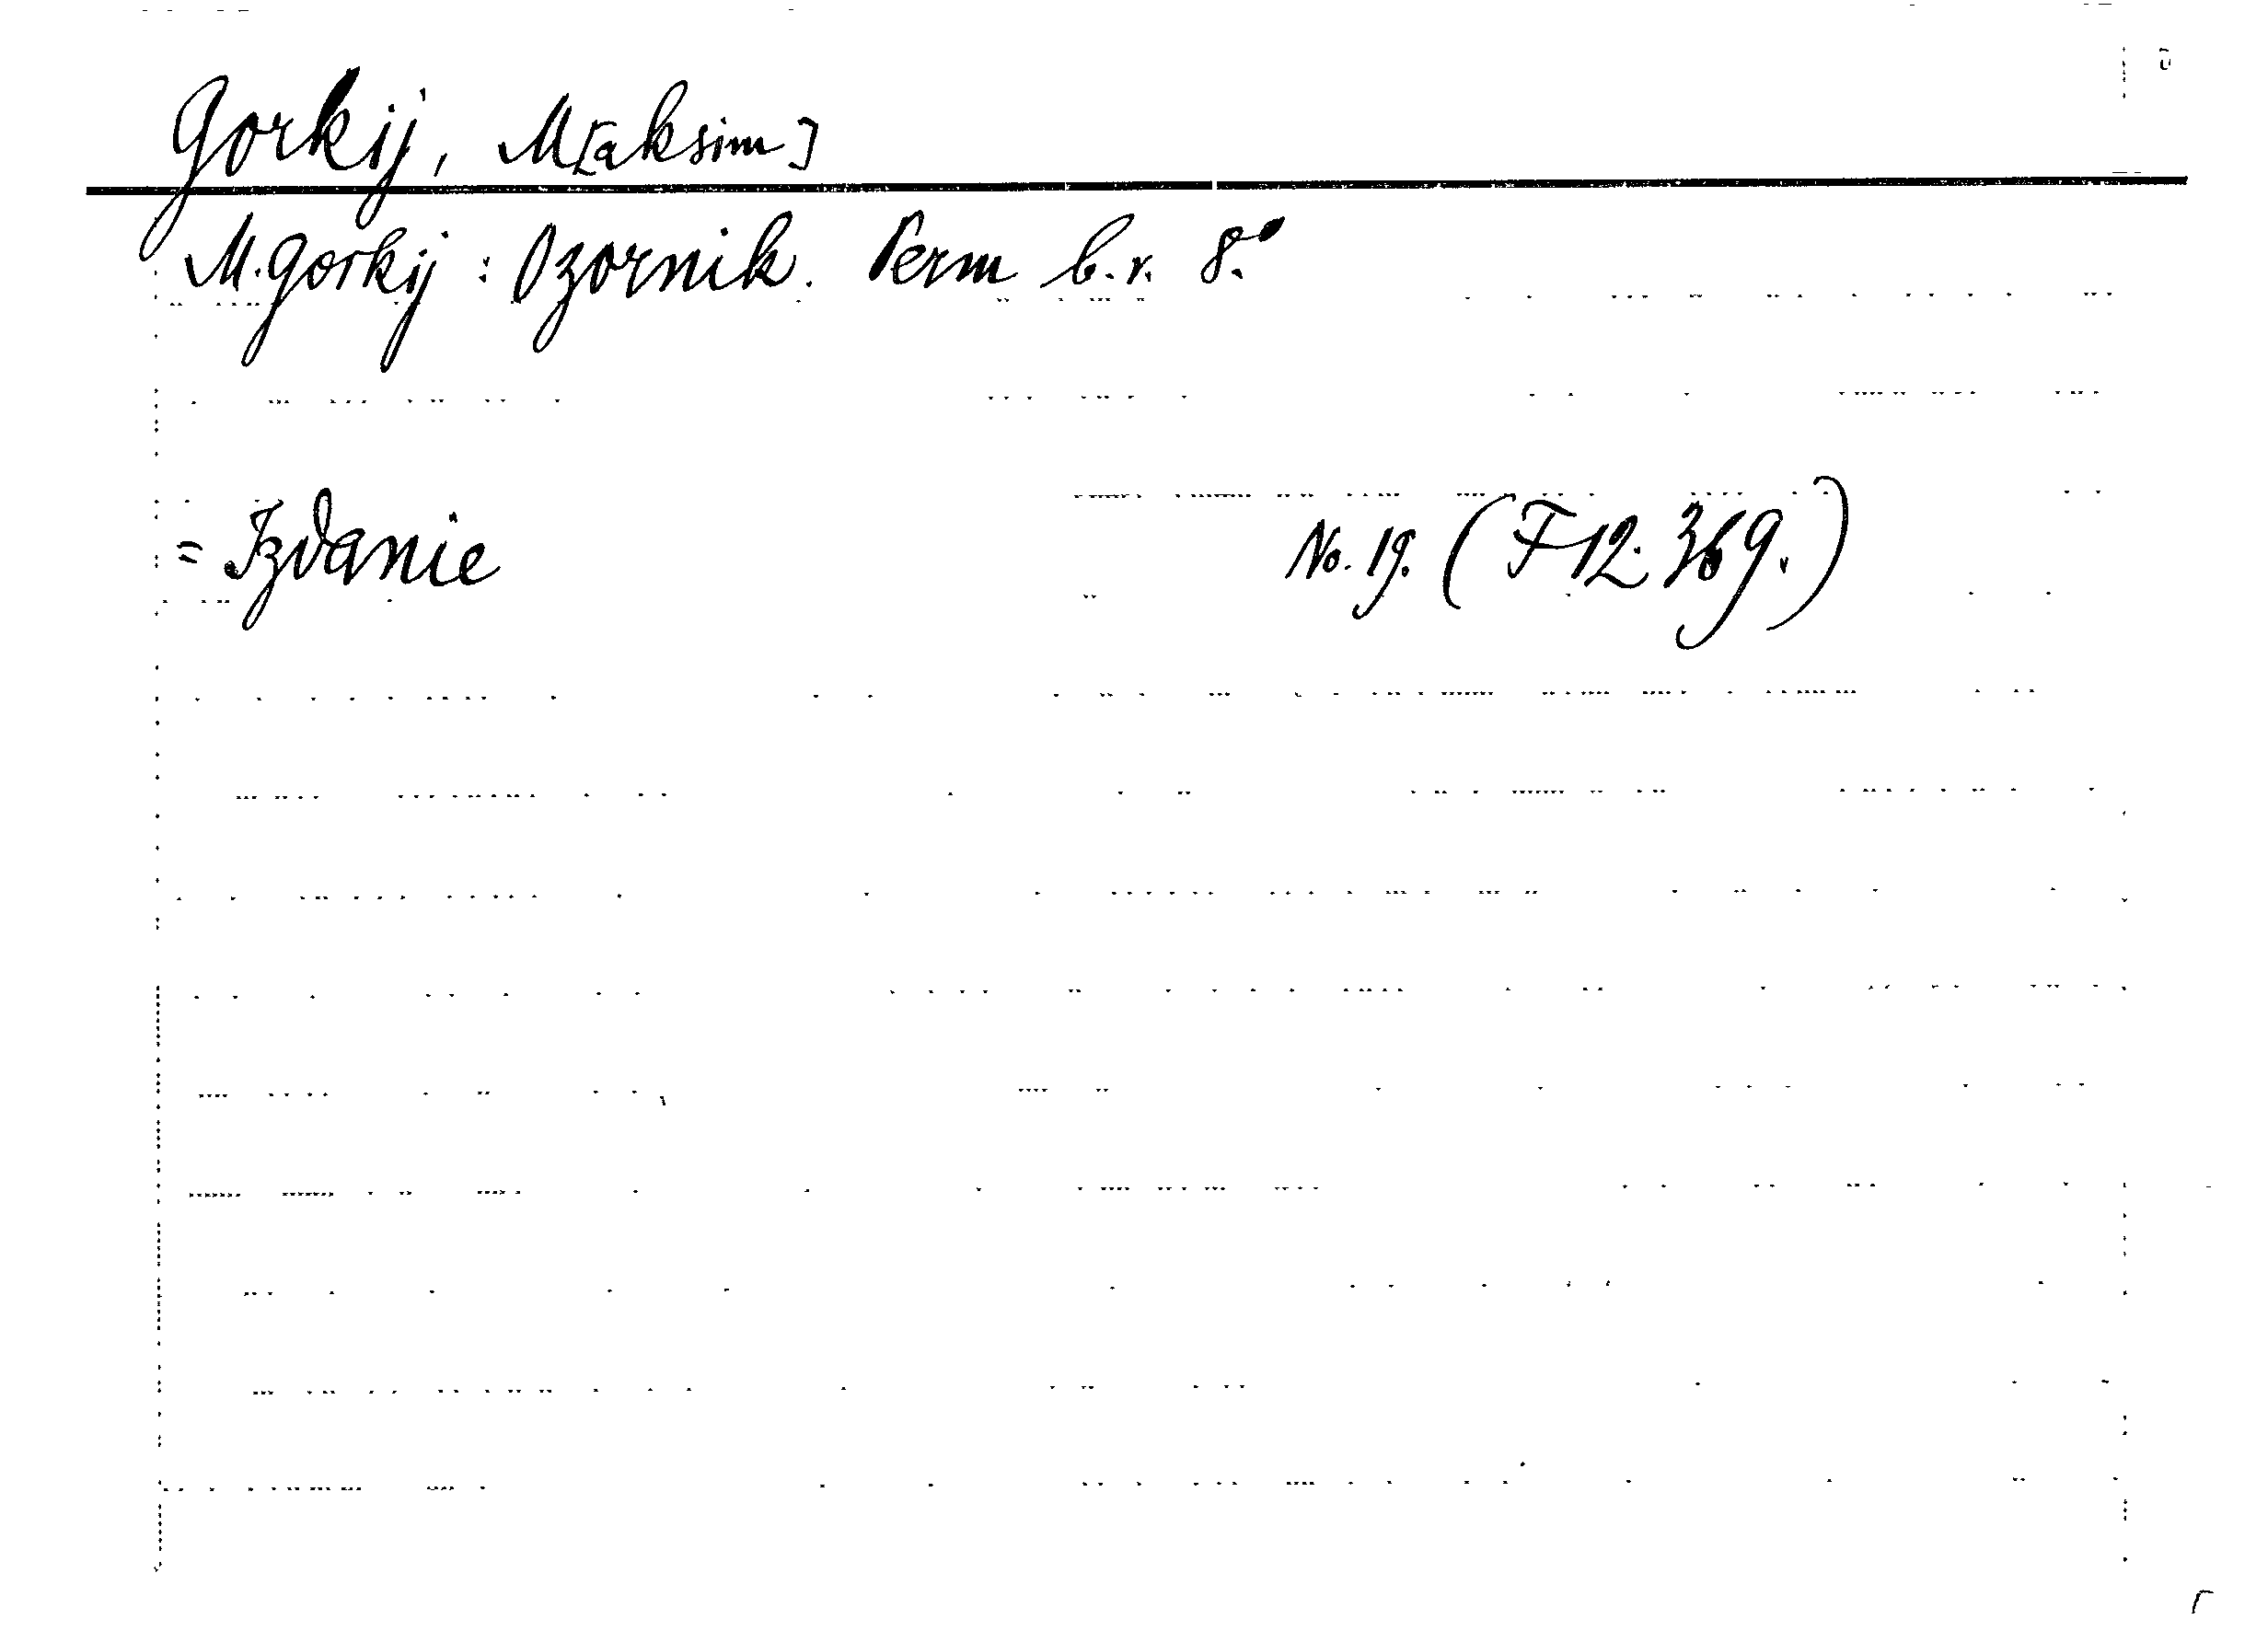 Gorkij, M[aksim]
M. Gorkij: Ozornik. Perm b.r. 8.°
= Izdanie No. 19. (F 12.369.)